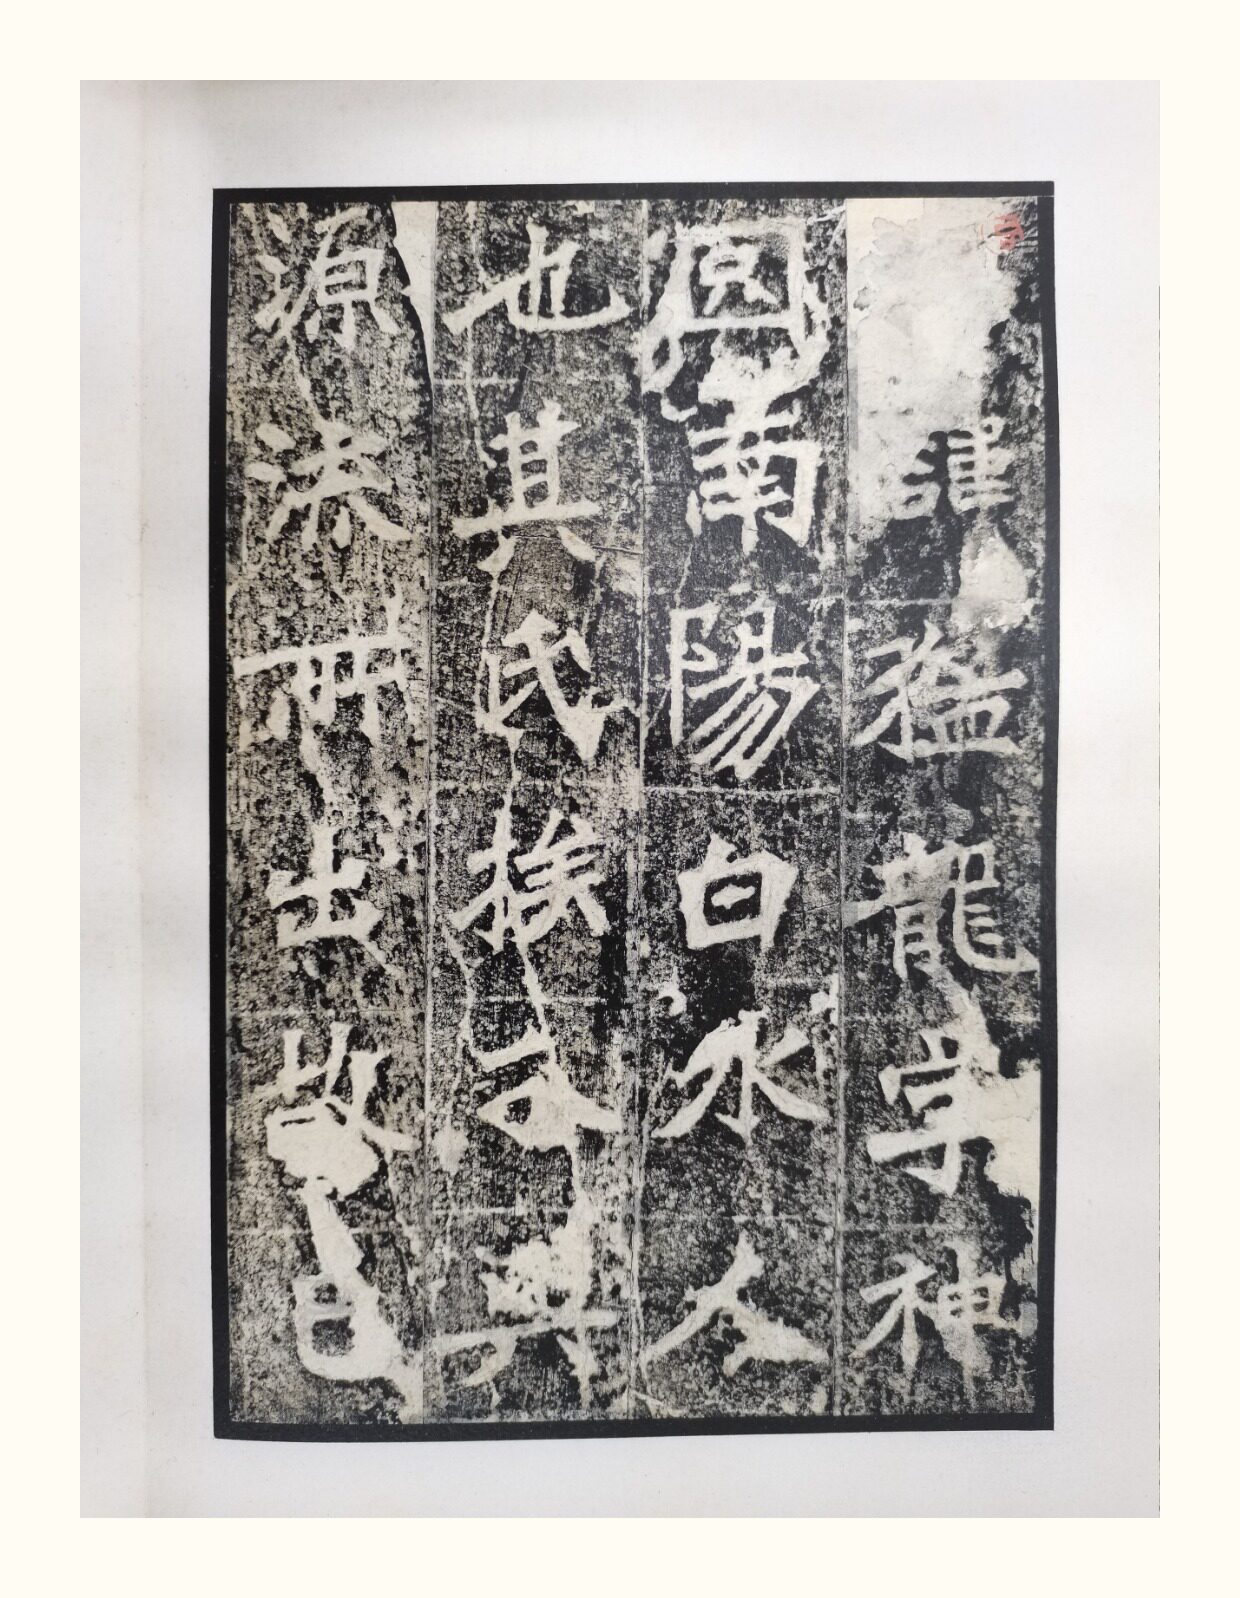 諱猛龍字神
囧南陽白水人
也其氏族分興
源流所出故已